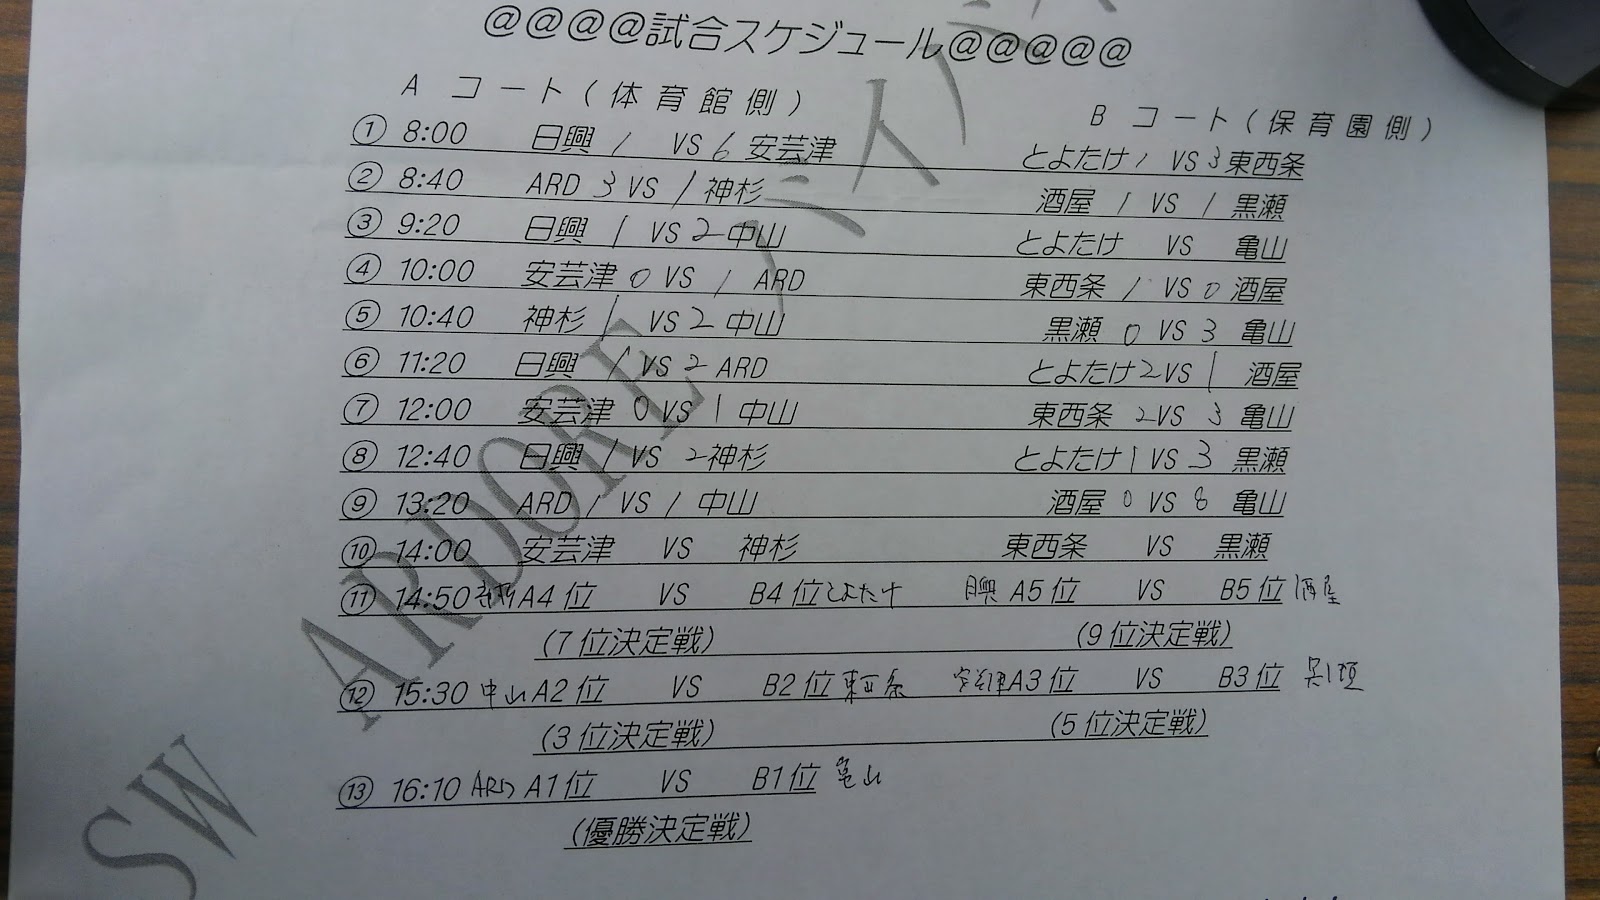 @@@@試合スケジュール@@@@@
A コート(体育館側) B コート(保育園側)
① 8:00 日興 1 VS 6 安芸津 とよたけ 1 VS 3 東西条
② 8:40 ARD 3 VS 1 神杉 酒屋 1 VS 1 黒瀬
③ 9:20 日興 1 VS 2 中山 とよたけ VS 亀山
④ 10:00 安芸津 0 VS 1 ARD 東西条 1 VS 0 酒屋
⑤ 10:40 神杉 1 VS 2 中山 黒瀬 0 VS 3 亀山
⑥ 11:20 日興 1 VS 2 ARD とよたけ 2 VS 1 酒屋
⑦ 12:00 安芸津 0 VS 1 中山 東西条 2 VS 3 亀山
⑧ 12:40 日興 1 VS 2 神杉 とよたけ 1 VS 3 黒瀬
⑨ 13:20 ARD 1 VS 1 中山 酒屋 0 VS 8 亀山
⑩ 14:00 安芸津 VS 神杉 東西条 VS 黒瀬
⑪ 14:50 A4位 VS B4位 とよたけ 日興 A5位 VS B5位 酒屋
(7位決定戦) (9位決定戦)
⑫ 15:30 中山 A2位 VS B2位 東西条 安芸津 A3位 VS B3位
(3位決定戦) (5位決定戦)
⑬ 16:10 ARD A1位 VS B1位 亀山
(優勝決定戦)
SW ARDORE